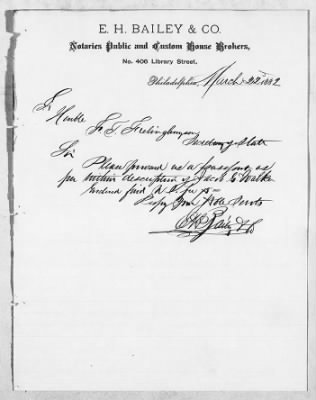 E. H. BAILEY & CO.
Notaries Public and Custom House Brokers,
No. 406 Library Street,
Philadelphia, March 22nd 1882
Honble
F. T. Frelinghuysen
Secretary of State
Sir
Please forward us a passport, as
per within description of Jacob G Walker
Enclosed find
Respy Your Obdt Servts
E H Bailey & Co